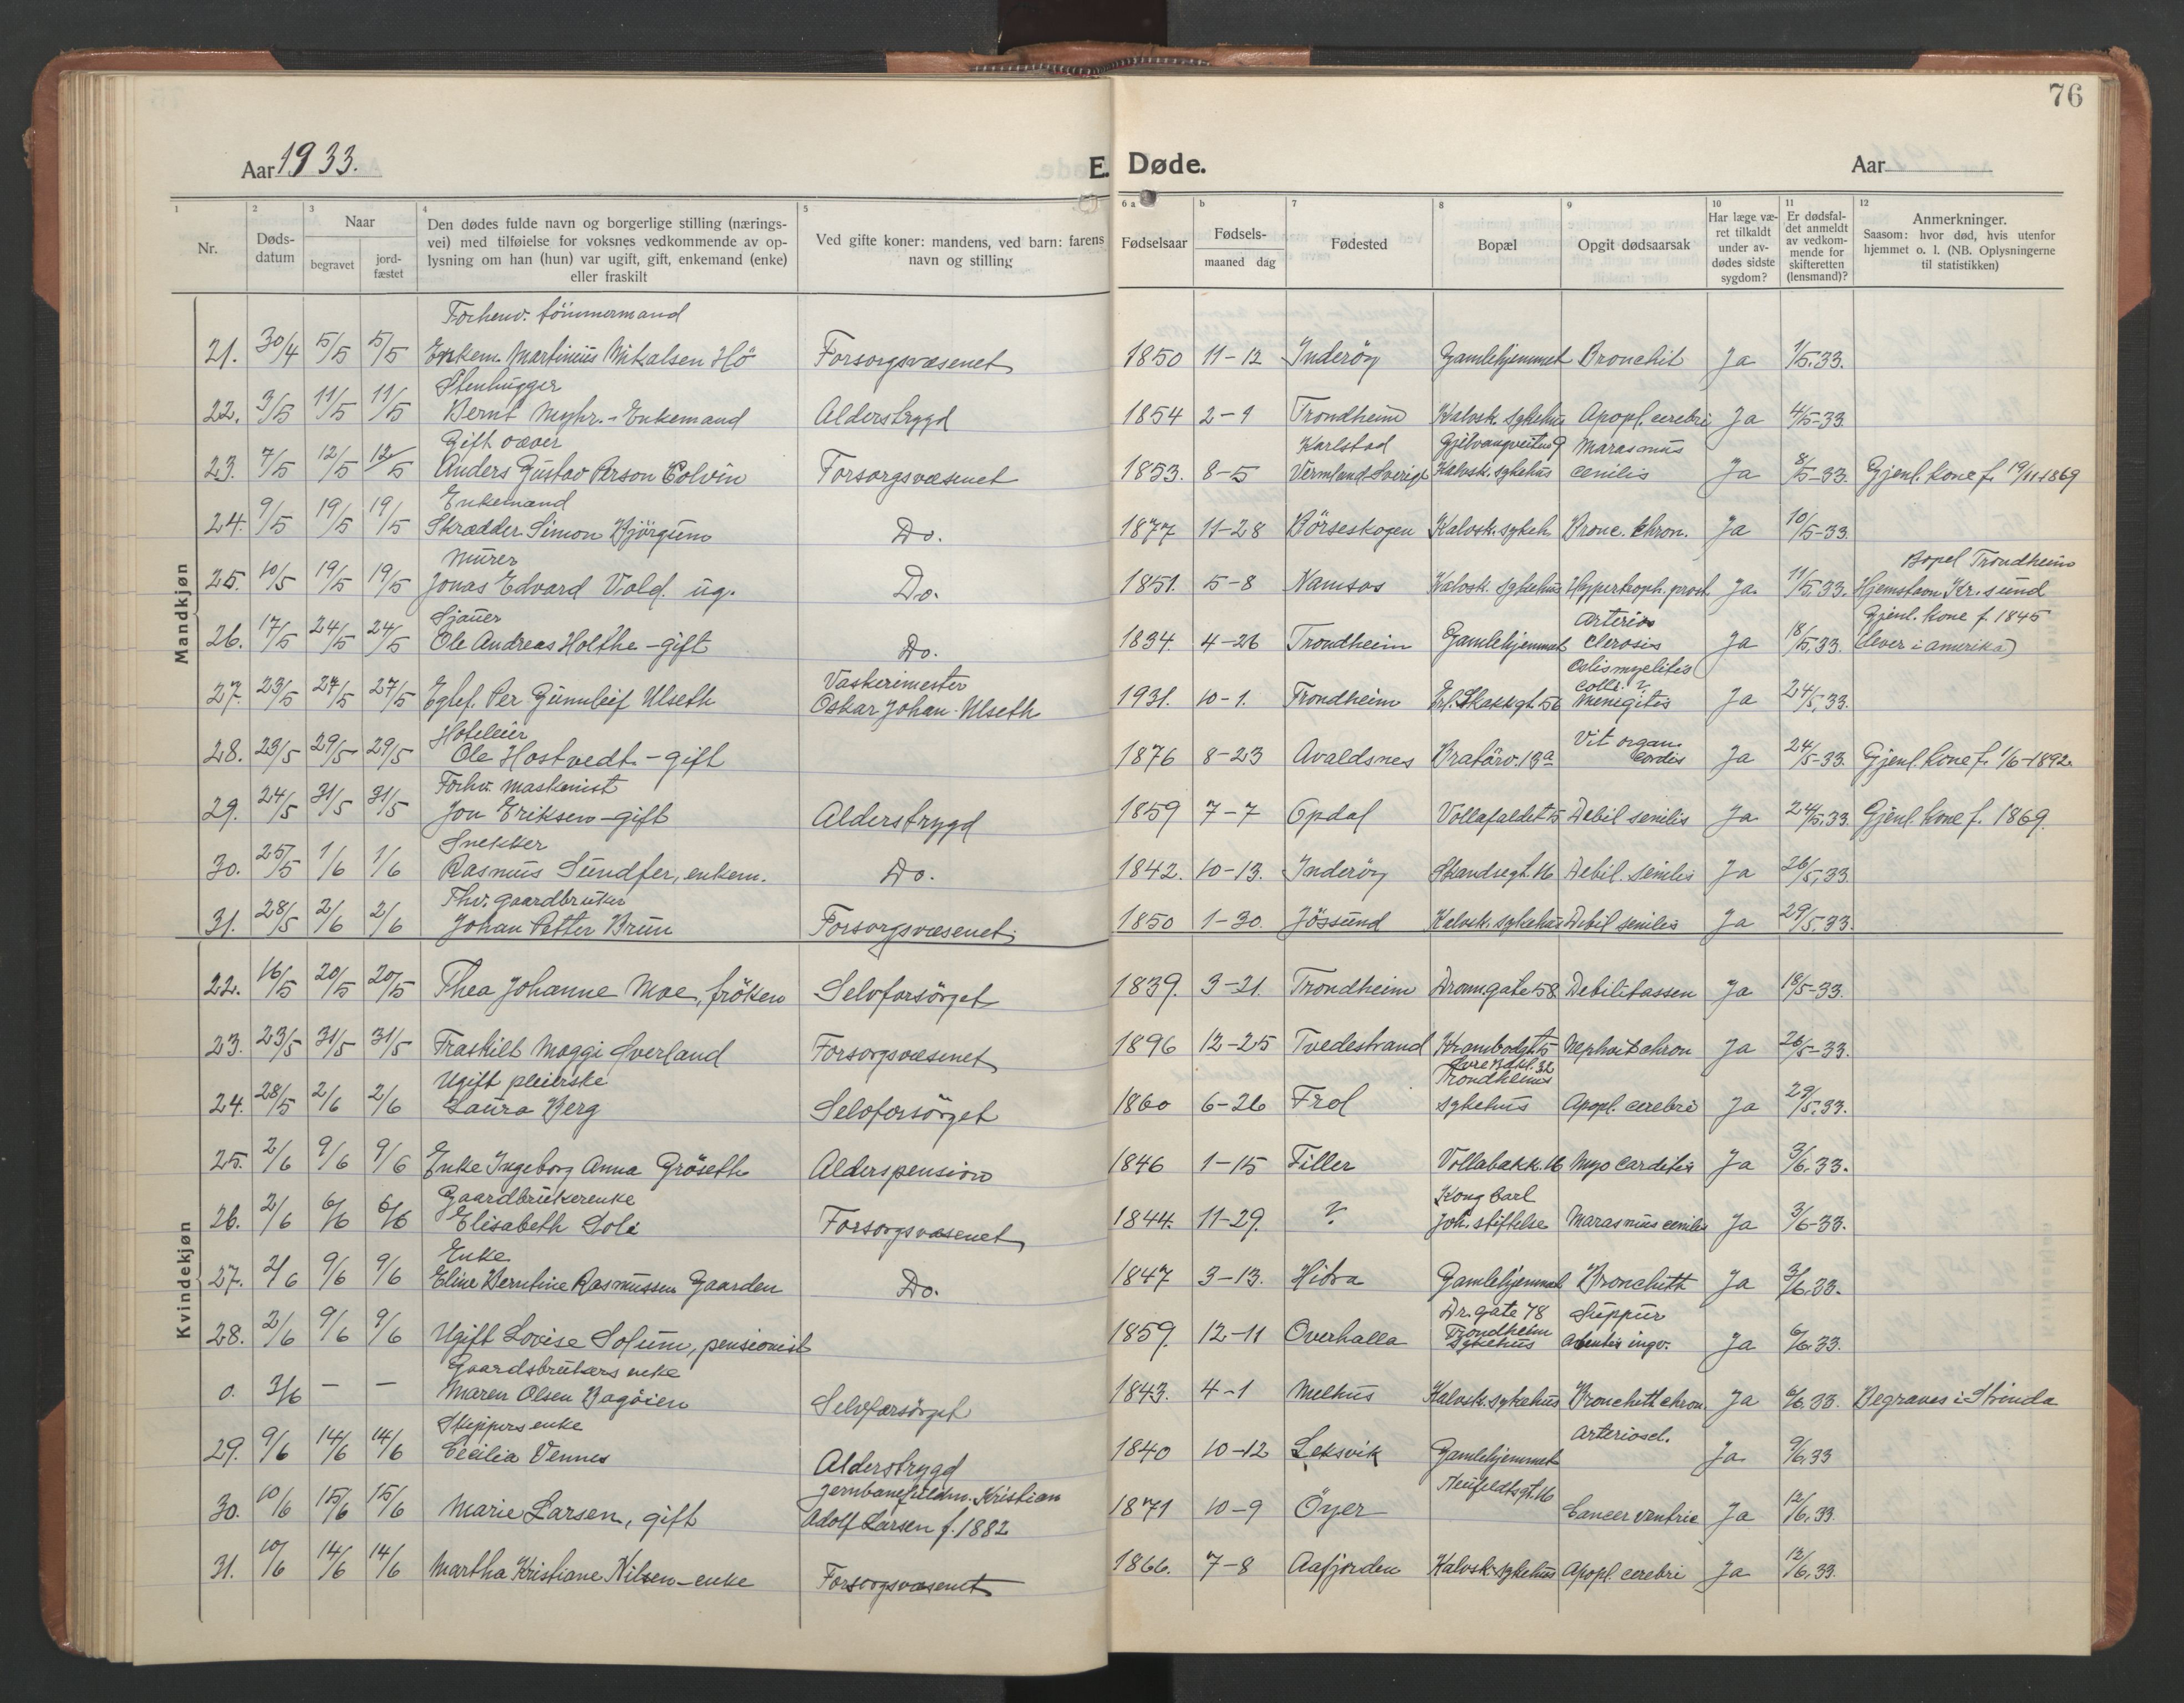 76
Aar 1933.
E. Døde.
Aar
1 2 3 4 5 6 a b 7 8 9 10 11 12
Nr.
Døds-
datum
Naar
begravet
jord-
fæstet
Den dødes fulde navn og borgerlige stilling (nærings-
vei) med tilføielse for voksnes vedkommende av op-
lysning om han (hun) var ugift, gift, enkemand (enke)
eller fraskilt
Ved gifte koner: mandens, ved barn: farens
navn og stilling
Fødselsaar
Fødsels-
maaned dag
Fødested
Bopæl
Opgit dødsaarsak
Har læge væ-
ret tilkaldt
under av-
dødes sidste
sygdom?
Er dødsfal-
det anmeldt
av vedkom-
mende for
skifteretten
(lensmand)?
Anmerkninger.
Saasom: hvor død, hvis utenfor
hjemmet o. l. (NB. Oplysningerne
til statistikken)
Mandkjøn
Forhenv. tömmermand
21. 30/4 5/5 5/5 Enkem. Martinius Mikalsen Hö Forsorgsvæsenet 1850 11-12 Inderöy Gamlehjemmet Bronchit Ja 1/5.33.
Stenhugger
22. 3/5 11/5 11/5 Bernt Myhr. - Enkemand Alderstrygd 1854 2-1 Trondheim Kalvsk. sykehus Apopl. cerebri Ja 4/5-33.
Gift væver Karlstad Marasmus
23. 7/5 12/5 12/5 Anders Gustav Person Colvin Forsorgsvæsenet 1853. 8-5 Vermland Sverige Kalvsk. sykehus cenilis Ja 8/5-33. Gjenl. kone f. 19/11-1869
Enkemand
24. 9/5 19/5 19/5 Skrædder Simon Bjørgum Do. 1877 11-28 Börseskogen Kalvsk. sykeh. Bronc. chron. Ja 10/5-33.
Murer Bopel Trondheim
25. 10/5 19/5 19/5 Jonas Edvard Vold. ug. Do. 1851. 5-8 Namsos Kalvsk. sykehus Hypertroph. prost Ja. 11/5.33. Hjemstavn Kr.sund
Sjauer Arterio Gjenl. kone f. 1845
26. 17/5 24/5 24/5 Ole Andreas Holthe - gift Do. 1834. 4-26 Trondheim Gamlehjemmet clerosis Ja 18/5.33. (lever i amerika)
Vaskerimester Ostismyelitis
coll. ?
27. 23/5 27/5 27/5 Egtef. Per Gunnleif Ulseth Oskar Johan Ulseth 1931. 10-1. Trondheim Erl. Skakkgt. 56 Menigitis Ja 24/5.33.
Hoteleier Vit organ.
28. 23/5 29/5 29/5 Ole Hostvedt - gift 1876 8-23 Avaldsnes Bratörv. 13a cordis Ja 24/5-33. Gjenl. kone f. 1/6-1892.
Forhv. maskinist
29. 24/5 31/5 31/5 Jon Eriksen - gift Alderstrygd 1859 7-7 Opdal Vollafaldet 5 Debil senilis Ja 24/5.33. Gjenl. kone f. 1869.
Snekker
30. 25/5 1/6 1/6 Rasmus Sundfer, enkem. Do. 1842. 10-13. Inderöy Strandvegt. 16 Debil. senilis Ja 26/5.33
Fhv. gaardbruker
31. 28/5 2/6 2/6 Johan Petter Brun Forsorgsvæsenet 1850 1-30. Jössund Kalvsk. sykehus Debil senilis Ja 29/5.33.
Kvindekjøn
22. 16/5 20/5 20/5 Thea Johanne Moe, fröken Selvforsörget 1839. 3-21. Trondheim Dronn.gate 58 Debilitassen Ja 18/5-33.
23. 23/5 31/5 31/5 Fraskilt Maggi Sverland Forsorgsvæsenet 1896 12-25 Tvedestrand Krambodgt. 5 Nephrit chron Ja 26/5-33.
Ugift pleierske Trondheims
24. 28/5 2/6 2/6 Laura Berg Selvforsörget 1860 6-26 Frol sykehus Apopl. cerebri Ja 29/5.33.
25. 2/6 9/6 9/6 Enke Ingeborg Anna Gröseth Alderspension 1846 1-15 Tiller Vollabakk. 16 Myo carditis Ja 3/6.33.
Gaardbrukerenke Kong Carl
26. 2/6 6/6 6/6 Elisabeth Soli Forsorgsvæsenet 1844. 11-29. ? Joh. stiftelse Marasmus cenilis Ja 3/6-33.
Enke
27. 2/6 9/6 9/6 Eline Berntine Rasmussen Gaarden Do. 1847 3-13. Hitra Gamlehjemmet Bronchitt Ja 3/6.33.
Dr. gate 78 Suppur
Trondheim
28. 2/6 9/6 9/6 Ugift Lovise Solum, pensionist 1859. 12-11 Overhalla Sykehus ingv. Ja 6/6.33.
Gaardsbrukers enke
0. 3/6 - - Maren Olsen Bagöien Selvforsörget 1843. 4-1 Melhus Kalvsk. sykehus Bronchitt chron. Ja 6/6.33. Begraves i Strinda
Skippers enke Arteriosel.
29. 9/6 14/6 14/6 Cecilia Vennes Alderstrygd 1840 10-12 Leksvik Gamlehjemmet Ja. 9/6.33
Jernbanefuldm. Kristian Neufeldtsgt. 16
30. 10/6 15/6 15/6 Marie Larsen, gift Adolf Larsen f. 1882 1871 10-9 Öyer Cancer ventric Ja 12/6.33.
31. 10/6 14/6 14/6 Martha Kristiane Nilsen - enke Forsorgsvæsenet 1866. 7-8 Aafjorden Kalvsk. sykehus Apopl. cerebri Ja 12/6.33.